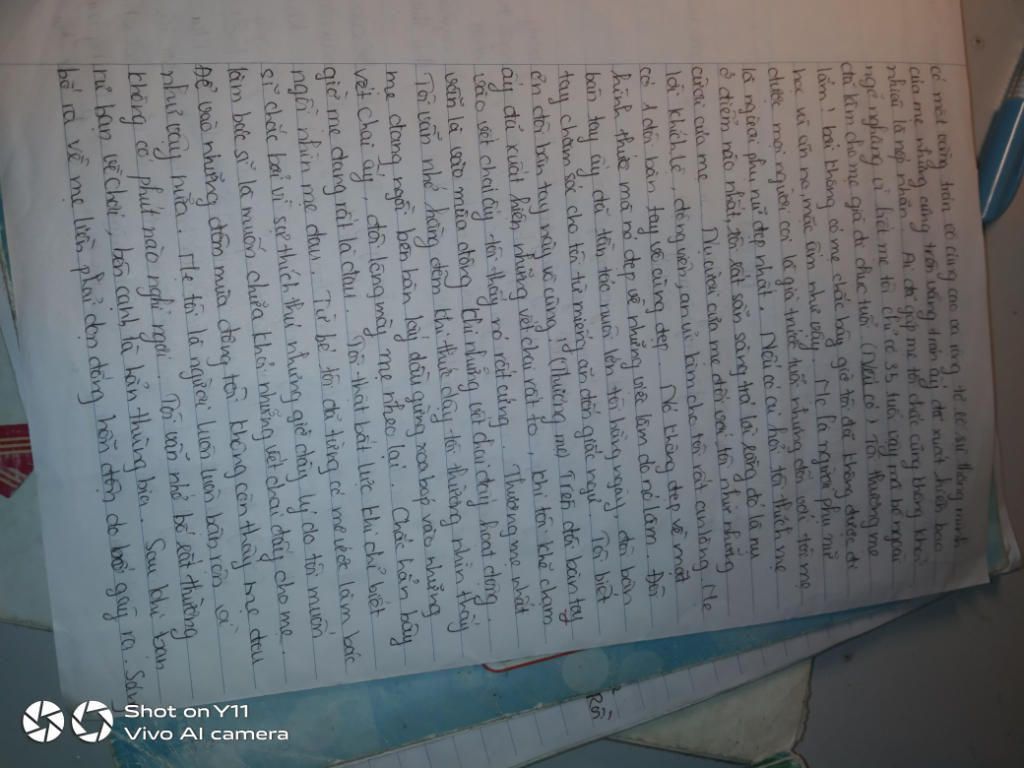 có một vầng trán vô cùng cao và rộng thể lộ sự thông minh
của mẹ nhưng cũng trên vầng trán ấy đã xuất hiện bao
nhiêu là nếp nhăn. Ai đã gặp mẹ tôi chắc cũng không khỏi
ngỡ ngàng vì mẹ tôi chỉ có 35 tuổi vậy mà bề ngoài
đã làm cho mẹ già đi chục tuổi (Nối có) Tôi thương mẹ
lắm! bởi không có mẹ chắc bây giờ tôi đã không được đi
học và ăn no, mặc ấm như vậy. Mẹ là người phụ nữ
được mọi người coi là già trước tuổi nhưng đối với tôi mẹ
là người phụ nữ đẹp nhất. Nếu có ai hỏi tôi thích mẹ
ở điểm nào nhất, tôi rất sẵn sàng trả lời rằng đó là nụ
cười của mẹ. Nụ cười của mẹ đối với tôi như những
lời khích lệ, động viên, an ủi làm cho tôi rất vui lòng. Mẹ
có 1 đôi bàn tay vô cùng đẹp. Nó không đẹp về mặt
hình thức mà nó đẹp về những việc làm do nó làm. Đôi
bàn tay ấy đã tần tảo nuôi lớn tôi hằng ngày, đôi bàn
tay chăm sóc cho tôi từ miếng ăn đến giấc ngủ. Tôi biết
ơn đôi bàn tay này vô cùng. (Thương mẹ) Trên đôi bàn tay
ấy đã xuất hiện những vết chai rất to, khi tôi khẽ chạm
vào vết chai ấy tôi thấy nó rất cứng. Thương mẹ nhất
vẫn là vào mùa đông khi những vết chai đấy hoạt động.
Tôi vẫn nhớ hằng đêm khi thức dậy tôi thường nhìn thấy
mẹ đang ngồi bên bàn lấy dầu gừng xoa bóp vào những
vết chai ấy, đôi lông mày mẹ nheo lại. Chắc hẳn bây
giờ mẹ đang rất là đau. Tôi thật bất lực khi chỉ biết
ngồi nhìn mẹ đau. Từ bé tôi đã từng có mơ ước làm bác
sĩ chắc bởi vì sở thích thú nhưng giờ đây lý do tôi muốn
làm bác sĩ là muốn chữa khỏi những vết chai đấy cho mẹ.
Để vào những đêm mùa đông tôi không còn thấy mẹ đau
như vậy nữa. Mẹ tôi là người luôn luôn bận rộn và
không có phút nào nghỉ ngơi. Tôi vẫn nhớ bố tôi thường
rủ bạn về chơi, bên cạnh là hẳn thùng bia. Sau khi bạn
bố ra về mẹ luôn phải dọn đống hỗn độn do bố gây ra. Sau
Rồi
Shot on Y11
Vivo AI camera